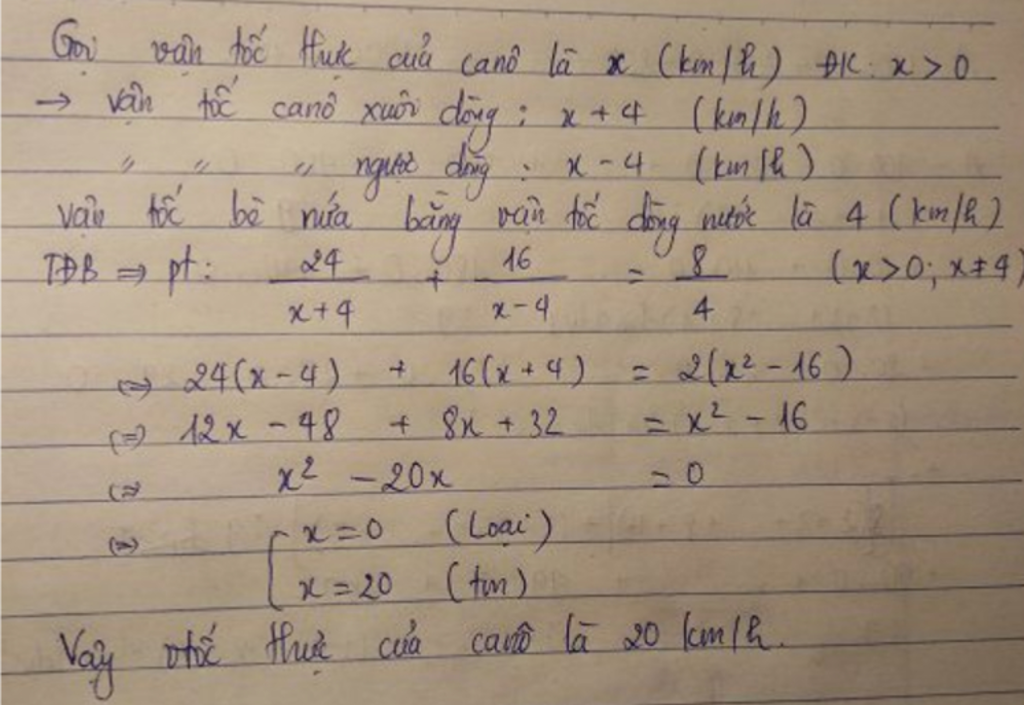 Gọi vận tốc thực của canô là x (km/h) ĐK: x > 0
→ vận tốc canô xuôi dòng : x + 4 (km/h)
" " " ngược dòng : x - 4 (km/h)
vận tốc bè nứa bằng vận tốc dòng nước là 4 (km/h)
TĐB ⇒ pt: 24/(x+4) + 16/(x-4) = 8/4 (x>0; x≠4)
⇔ 24(x-4) + 16(x+4) = 2(x² - 16)
⇔ 12x - 48 + 8x + 32 = x² - 16
⇔ x² - 20x = 0
⇔ [ x = 0 (Loại)
x = 20 (tm)
Vậy vtốc thực của canô là 20 km/h.